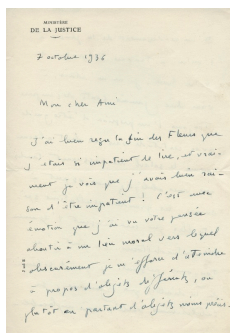 MINISTÈRE
DE LA JUSTICE
7 octobre 1936
Mon cher Ami
J'ai bien reçu la fin des Fleurs que
j'étais si impatient de lire, et vrai-
ment je vois que j'avais bien rai-
son d'être impatient ! C'est avec
émotion que j'ai vu votre pensée
aboutir à un lieu moral vers lequel
obscurément je m'efforce d'atteindre
à propos d'objets différents, ou
plutôt en partant d'objets